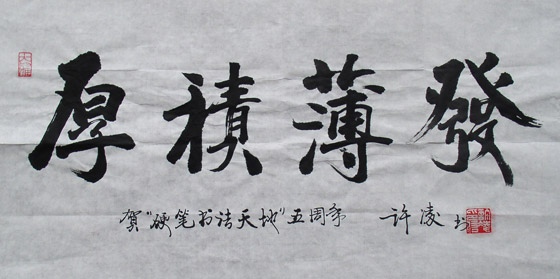 厚積薄發
贺"硬笔书法天地"五周年 许凌书